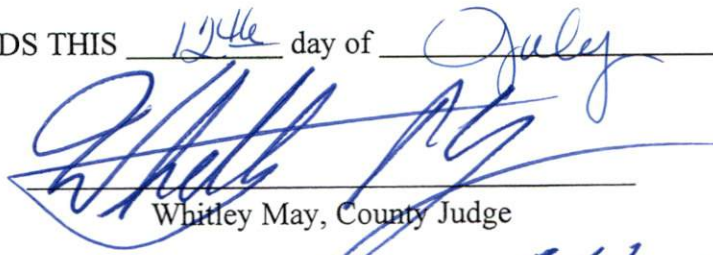 DS THIS 12th day of July
Whitley May, County Judge